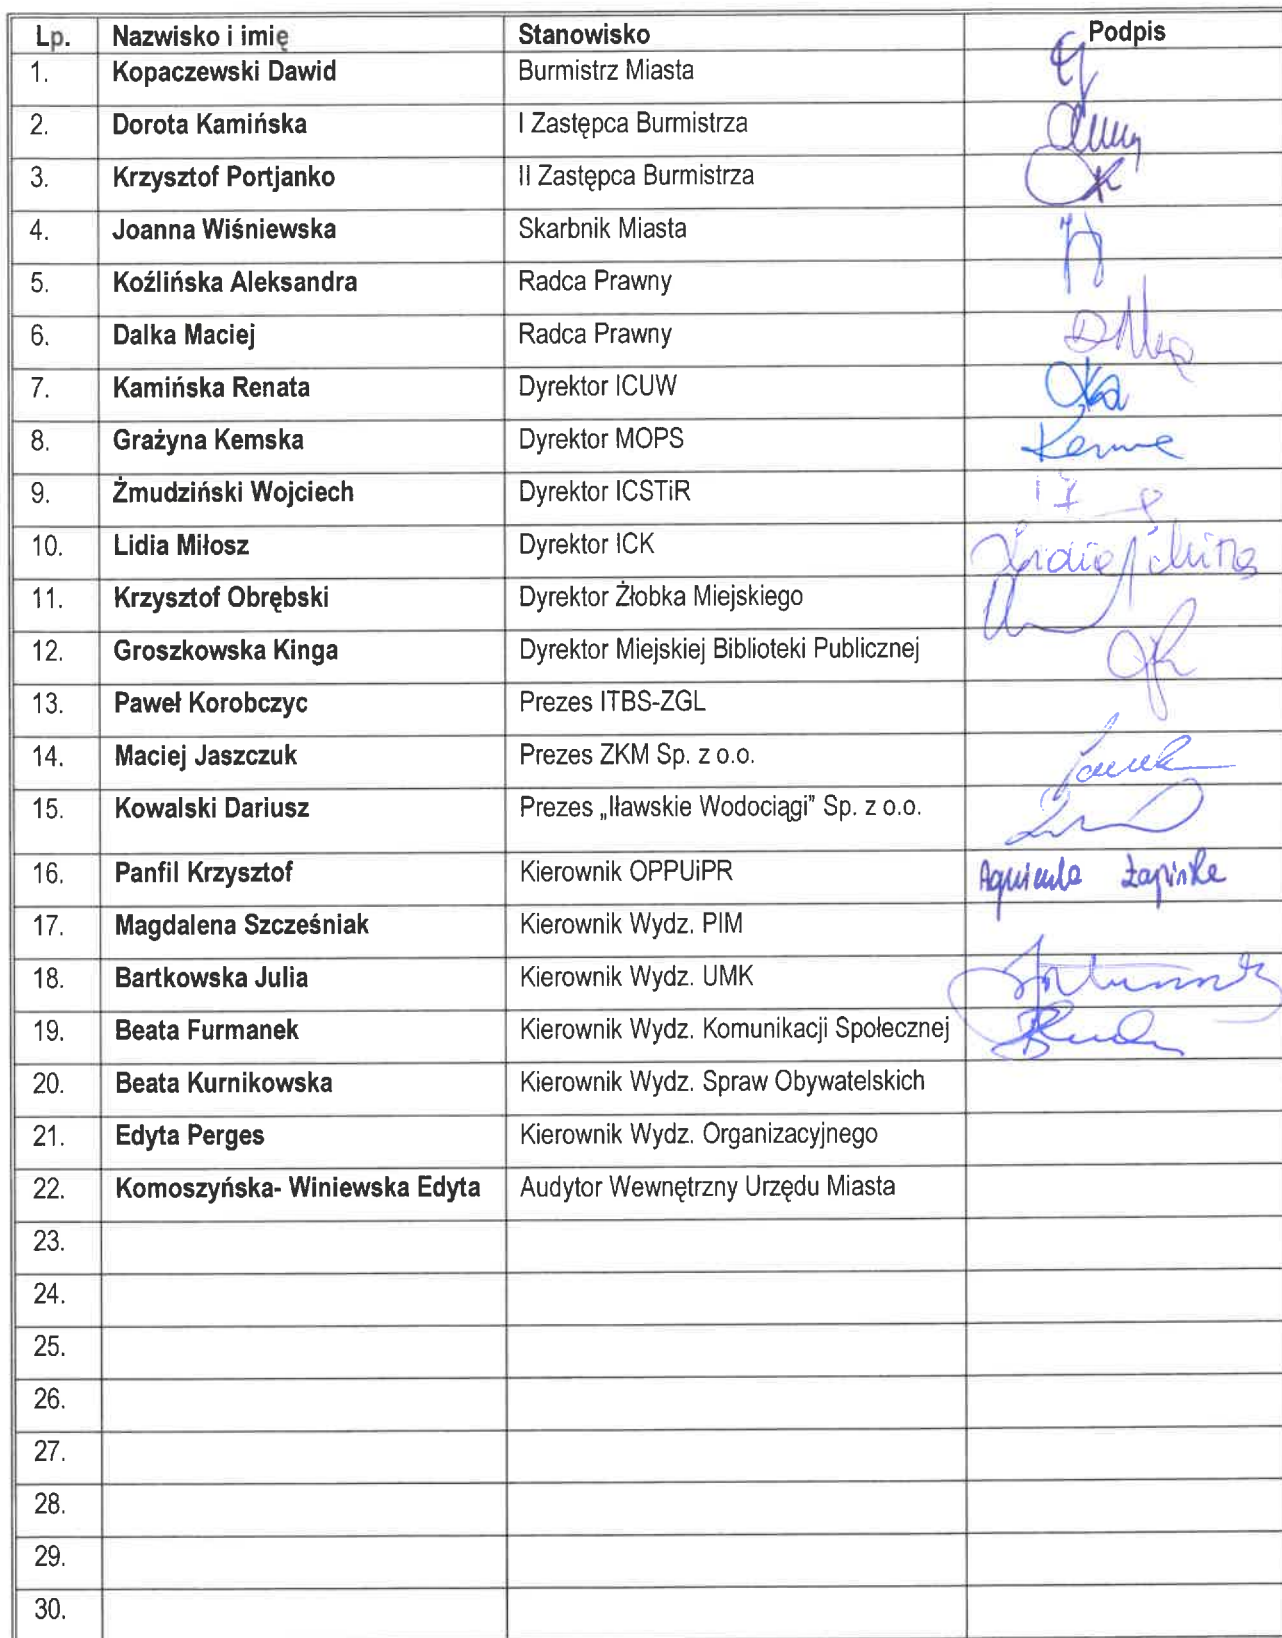 Lp. Nazwisko i imię Stanowisko Podpis
1. Kopaczewski Dawid Burmistrz Miasta
2. Dorota Kamińska I Zastępca Burmistrza
3. Krzysztof Portjanko II Zastępca Burmistrza
4. Joanna Wiśniewska Skarbnik Miasta
5. Koźlińska Aleksandra Radca Prawny
6. Dalka Maciej Radca Prawny
7. Kamińska Renata Dyrektor ICUW
8. Grażyna Kemska Dyrektor MOPS
9. Żmudziński Wojciech Dyrektor ICSTiR
10. Lidia Miłosz Dyrektor ICK
11. Krzysztof Obrębski Dyrektor Żłobka Miejskiego
12. Groszkowska Kinga Dyrektor Miejskiej Biblioteki Publicznej
13. Paweł Korobczyc Prezes ITBS-ZGL
14. Maciej Jaszczuk Prezes ZKM Sp. z o.o.
15. Kowalski Dariusz Prezes „Iławskie Wodociągi” Sp. z o.o.
16. Panfil Krzysztof Kierownik OPPUiPR
17. Magdalena Szcześniak Kierownik Wydz. PIM
18. Bartkowska Julia Kierownik Wydz. UMK
19. Beata Furmanek Kierownik Wydz. Komunikacji Społecznej
20. Beata Kurnikowska Kierownik Wydz. Spraw Obywatelskich
21. Edyta Perges Kierownik Wydz. Organizacyjnego
22. Komoszyńska- Winiewska Edyta Audytor Wewnętrzny Urzędu Miasta
23.
24.
25.
26.
27.
28.
29.
30.